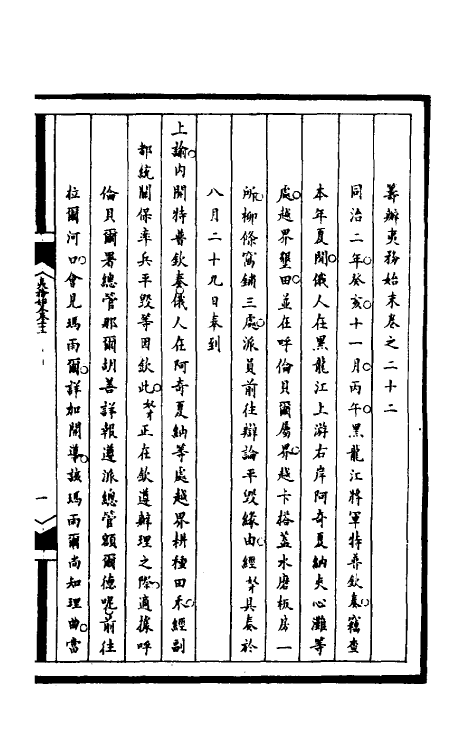 籌辦夷務始末卷之二十二
同治二年癸亥十一月丙午黑龍江將軍特普欽奏竊查
本年夏間俄人在黑龍江上游右岸阿奇夏納夾心灘等
處越界墾田並在呼倫貝爾屬界越卡搭蓋水磨板房一
所柳條窩鋪三處派員前往辯論平毀緣由經奴才具奏於
八月二十九日奉到
上諭內開特普欽奏俄人在阿奇夏納等處越界耕種田禾經副
都統關保率兵平毀等因欽此奴才正在欽遵辦理之際適據呼
倫貝爾署總管那爾胡善詳報遵派總管額爾德呢前往
拉爾河口會見瑪雨爾詳加開導該瑪雨爾尚知理曲當